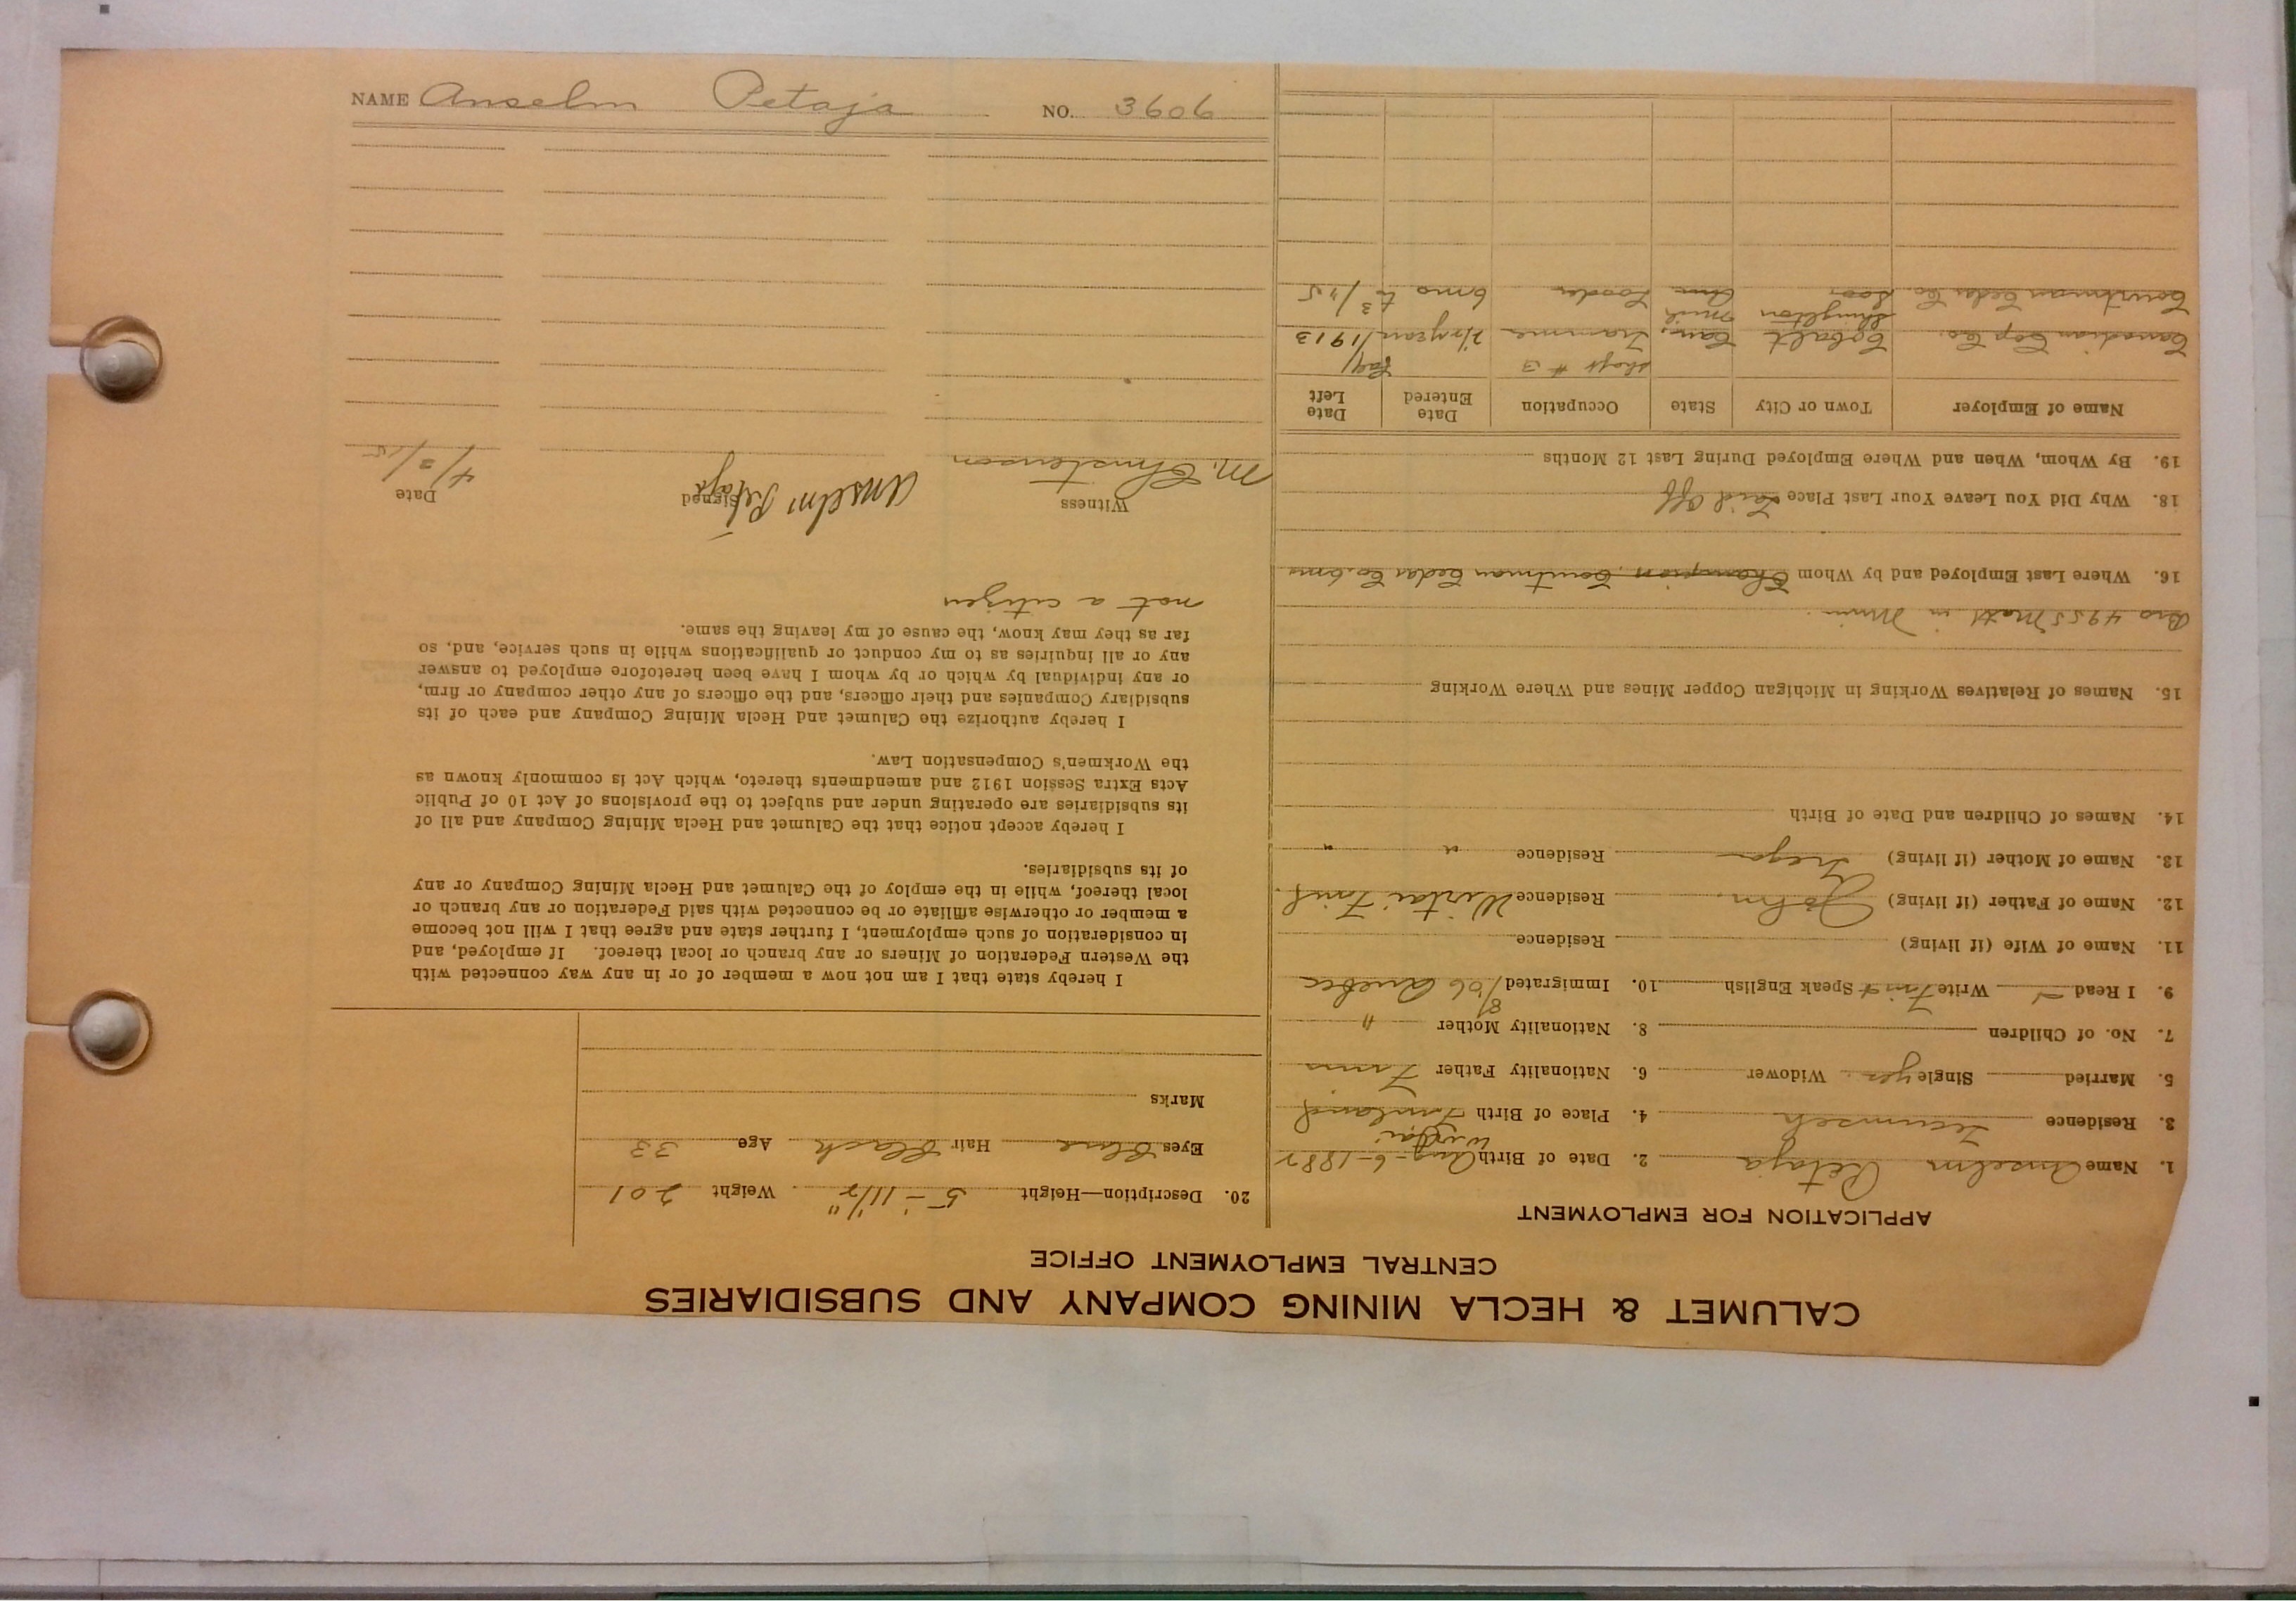 NAME Anselm Petaja NO. 3606
CALUMET & HECLA MINING COMPANY AND SUBSIDIARIES
CENTRAL EMPLOYMENT OFFICE
APPLICATION FOR EMPLOYMENT
1. Name Anselm Petaja 2. Date of Birth Aug-6-1882
3. Residence Tecumseh 4. Place of Birth Finland
5. Married Single yes Widower 6. Nationality Father Finn
7. No. of Children 8. Nationality Mother "
9. I Read Write Speak English 10. Immigrated 8/06 Quebec
11. Name of Wife (if living) Residence
12. Name of Father (if living) John Residence Finl
13. Name of Mother (if living) Residence " "
14. Names of Children and Date of Birth
15. Names of Relatives Working in Michigan Copper Mines and Where Working
Bro 4955 Matt in
16. Where Last Employed and by Whom Champion, Courtman Cedar Co. 6mo
18. Why Did You Leave Your Last Place Laid Off
19. By Whom, When and Where Employed During Last 12 Months
Name of Employer Town or City State Occupation Date Entered Date Left
Canadian Cop Co. Cobalt Can. Shaft #3 Tramme 2½ year 1913
Courtman Cedar Co. Shingleton Mich Loader 6mo to 3/15
20. Description—Height 5'-11½" Weight 201
Eyes Blue Hair Black Age 33
Marks
I hereby state that I am not now a member of or in any way connected with
the Western Federation of Miners or any branch or local thereof. If employed, and
in consideration of such employment, I further state and agree that I will not become
a member or otherwise affiliate or be connected with said Federation or any branch or
local thereof, while in the employ of the Calumet and Hecla Mining Company or any
of its subsidiaries.
I hereby accept notice that the Calumet and Hecla Mining Company and all of
its subsidiaries are operating under and subject to the provisions of Act 10 of Public
Acts Extra Session 1912 and amendments thereto, which Act is commonly known as
the Workmen's Compensation Law.
I hereby authorize the Calumet and Hecla Mining Company and each of its
subsidiary Companies and their officers, and the officers of any other company or firm,
or any individual by which or by whom I have been heretofore employed to answer
any or all inquiries as to my conduct or qualifications while in such service, and, so
far as they may know, the cause of my leaving the same.
not a citizen
Witness Signed Date
M. Christenson Anselm Petaja 4/3/15